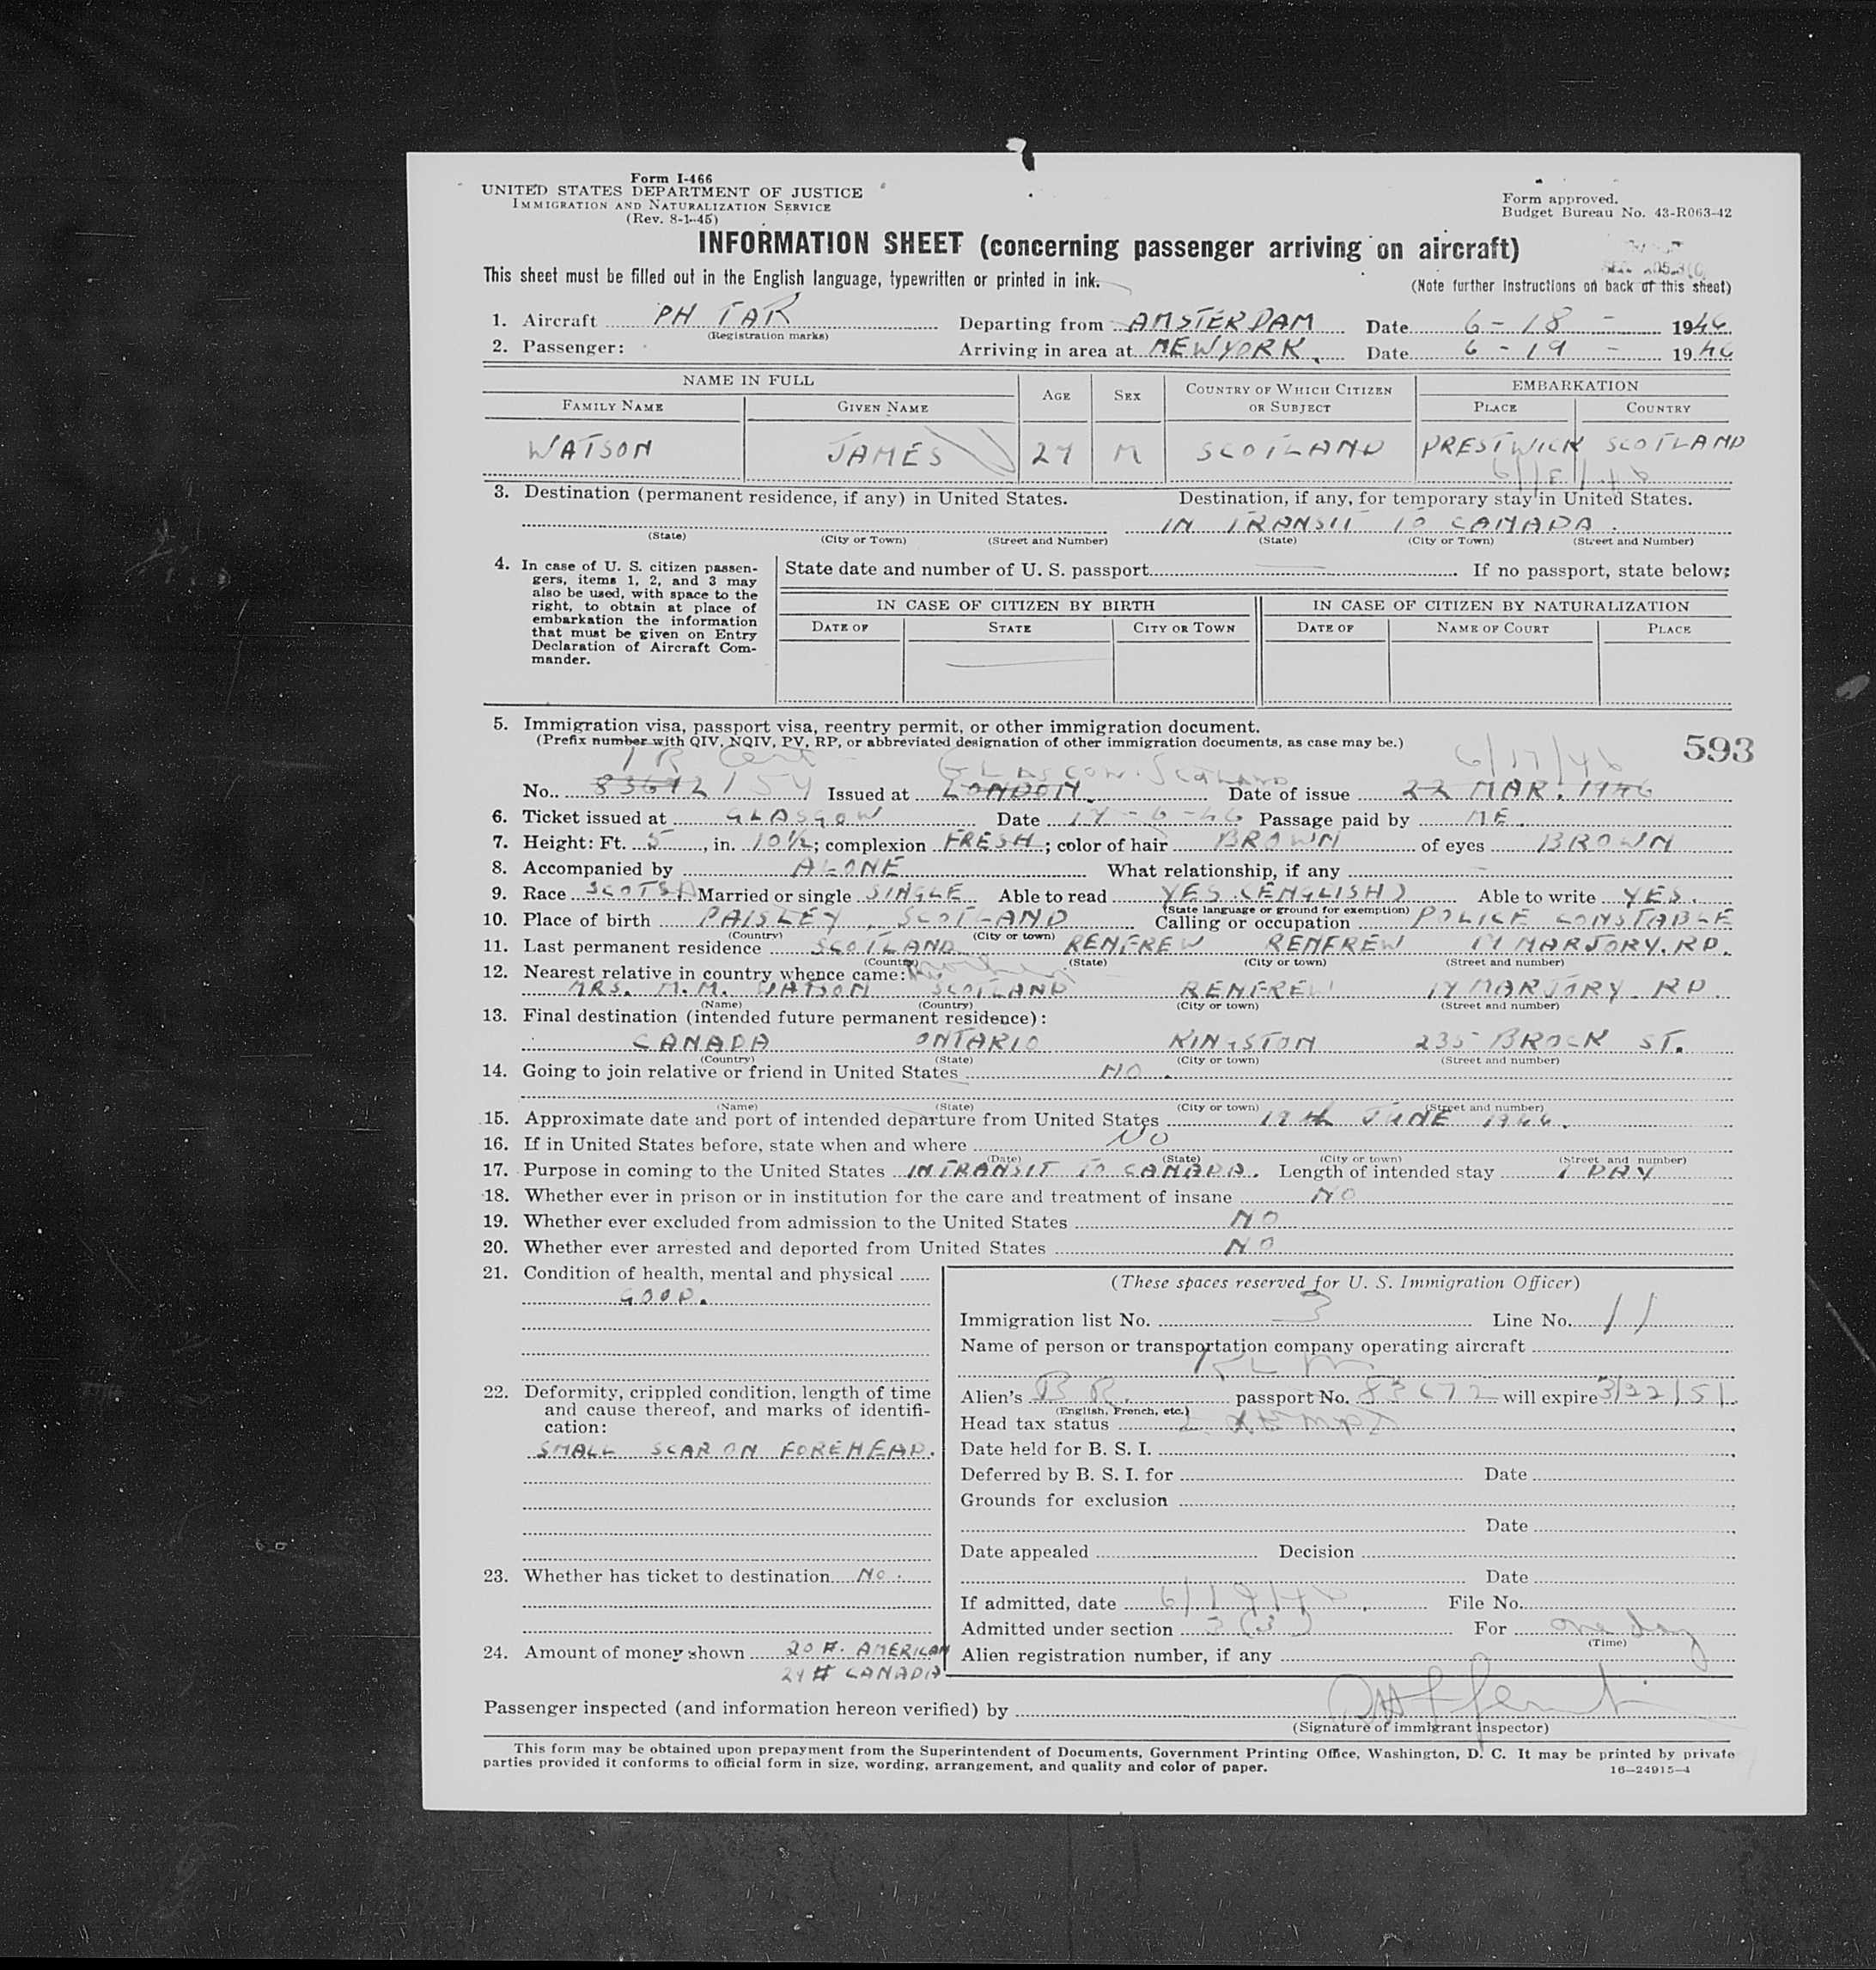 Form I-466
UNITED STATES DEPARTMENT OF JUSTICE
IMMIGRATION AND NATURALIZATION SERVICE
(Rev. 8-1-45)
Form approved.
Budget Bureau No. 43-R063-42
INFORMATION SHEET (concerning passenger arriving on aircraft)
This sheet must be filled out in the English language, typewritten or printed in ink.
(Note further instructions on back of this sheet)
1. Aircraft PH TAR Departing from AMSTERDAM Date 6-18- 1946
(Registration marks)
2. Passenger: Arriving in area at NEW YORK. Date 6-19- 1946
NAME IN FULL AGE SEX COUNTRY OF WHICH CITIZEN OR SUBJECT EMBARKATION
FAMILY NAME GIVEN NAME PLACE COUNTRY
WATSON JAMES 24 M SCOTLAND PRESTWICK SCOTLAND
6/18/46
3. Destination (permanent residence, if any) in United States. Destination, if any, for temporary stay in United States.
IN TRANSIT TO CANADA.
(State) (City or Town) (Street and Number) (State) (City or Town) (Street and Number)
4. In case of U. S. citizen passengers, items 1, 2, and 3 may also be used, with space to the right, to obtain at place of embarkation the information that must be given on Entry Declaration of Aircraft Commander.
State date and number of U. S. passport If no passport, state below:
IN CASE OF CITIZEN BY BIRTH IN CASE OF CITIZEN BY NATURALIZATION
DATE OF STATE CITY OR TOWN DATE OF NAME OF COURT PLACE
5. Immigration visa, passport visa, reentry permit, or other immigration document.
(Prefix number with QIV, NQIV, PV, RP, or abbreviated designation of other immigration documents, as case may be.)
593
TR Cert GLASGOW. SCOTLAND 6/17/46
No. 83672 154 Issued at LONDON. Date of issue 22 MAR. 1946
6. Ticket issued at GLASGOW Date 14-6-46 Passage paid by ME.
7. Height: Ft. 5, in. 10½; complexion FRESH; color of hair BROWN of eyes BROWN
8. Accompanied by ALONE What relationship, if any -
9. Race SCOTSH Married or single SINGLE Able to read YES (ENGLISH) Able to write YES.
(State language or ground for exemption)
10. Place of birth PAISLEY, SCOTLAND Calling or occupation POLICE CONSTABLE
(Country) (City or town)
11. Last permanent residence SCOTLAND RENFREW RENFREW 14 MARJORY. RD.
(Country) (State) (City or town) (Street and number)
12. Nearest relative in country whence came: mother
MRS. M. M. WATSON SCOTLAND RENFREW 14 MARJORY. RD.
(Name) (Country) (City or town) (Street and number)
13. Final destination (intended future permanent residence):
CANADA ONTARIO KINGSTON 235 BROCK ST.
(Country) (State) (City or town) (Street and number)
14. Going to join relative or friend in United States NO.
(Name) (State) (City or town) (Street and number)
15. Approximate date and port of intended departure from United States 19th JUNE 1946.
16. If in United States before, state when and where NO
(Date) (State) (City or town) (Street and number)
17. Purpose in coming to the United States IN TRANSIT TO CANADA. Length of intended stay 1 DAY
18. Whether ever in prison or in institution for the care and treatment of insane NO
19. Whether ever excluded from admission to the United States NO
20. Whether ever arrested and deported from United States NO
21. Condition of health, mental and physical
GOOD.
22. Deformity, crippled condition, length of time and cause thereof, and marks of identification:
SMALL SCAR ON FOREHEAD.
23. Whether has ticket to destination NO.
24. Amount of money shown 20 #. AMERICAN
24 # CANADIA
(These spaces reserved for U. S. Immigration Officer)
Immigration list No. 3 Line No. 11
Name of person or transportation company operating aircraft
KLM
Alien's BR. passport No. 83672 will expire 3/22/51
(English, French, etc.)
Head tax status Exempt
Date held for B. S. I.
Deferred by B. S. I. for Date
Grounds for exclusion
Date
Date appealed Decision
Date
If admitted, date 6/19/46. File No.
Admitted under section 3(3) For one day
(Time)
Alien registration number, if any
Passenger inspected (and information hereon verified) by
(Signature of immigrant inspector)
This form may be obtained upon prepayment from the Superintendent of Documents, Government Printing Office, Washington, D. C. It may be printed by private
parties provided it conforms to official form in size, wording, arrangement, and quality and color of paper.
16—24915-4